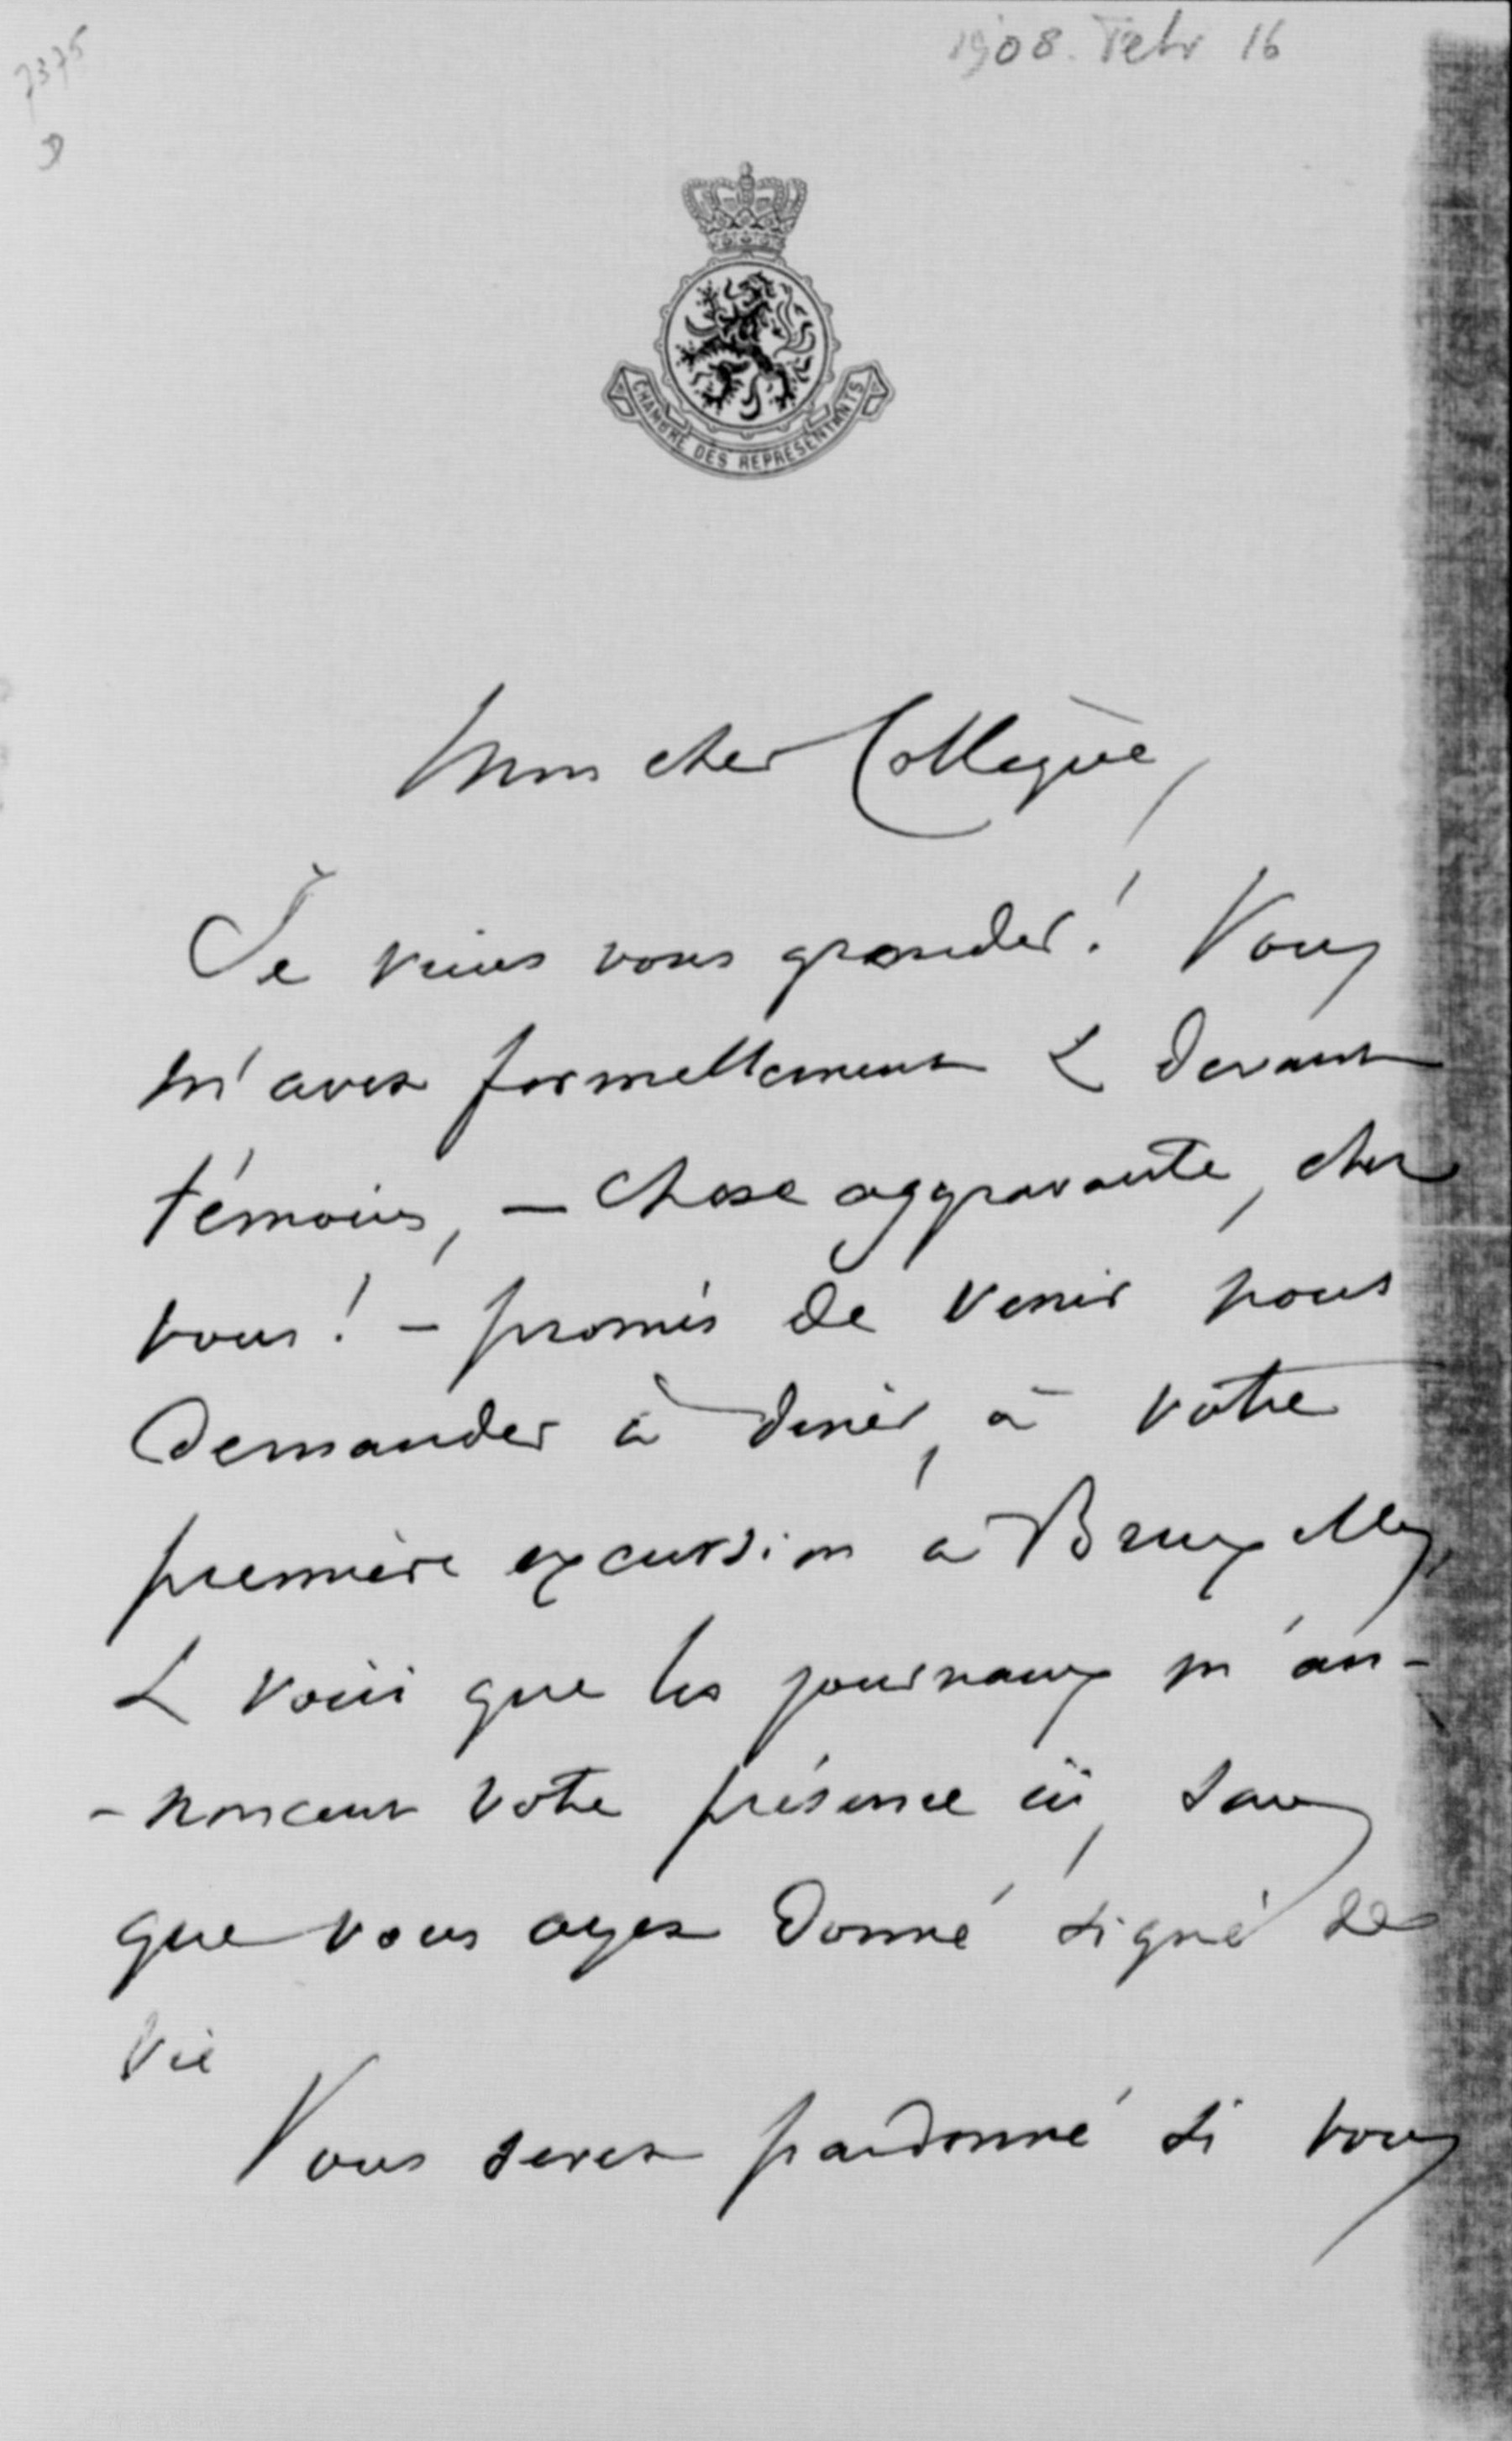 1908. Febr 16
7375
D
CHAMBRE DES REPRÉSENTANTS
Mon cher Collègue,
Je viens vous gronder! Vous
m'avez formellement & devant
témoins, — chose aggravante, chez
vous! — promis de venir nous
demander à dîner, à votre
première excursion à Bruxelles,
& voici que les journaux m'an-
-noncent votre présence ici, sans
que vous ayez donné signe de
vie
Vous serez pardonné si vous